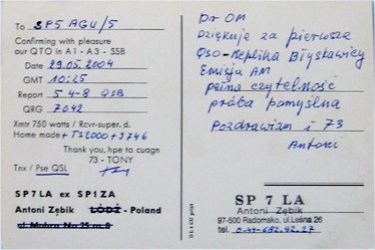 To SP5 AGU/5
Confirming with pleasure
our QTO in A1 - A3 - SSB
Date 29.05.2004
GMT 10:25
Report 54-8 QSB
QRG 7042
Xmtr 750 watts / Rcvr-super. d.
Home made + TS2000 + 3746
Thank you, hpe to cuagn
73 - TONY
Tnx / Pse QSL
SP7LA ex SP1ZA
Antoni Zębik ŁÓDŹ - Poland
Dr OM
Dziękuję za pierwsze
QSO-Replika Błyskawicy
Emisja AM
pełna czytelność
próba pomyślna
Pozdrawiam i 73
Antoni
SP 7 LA
Antoni Zębik
97-500 Radomsko, ul.Leśna 26
tel. 0-44-682.42.27